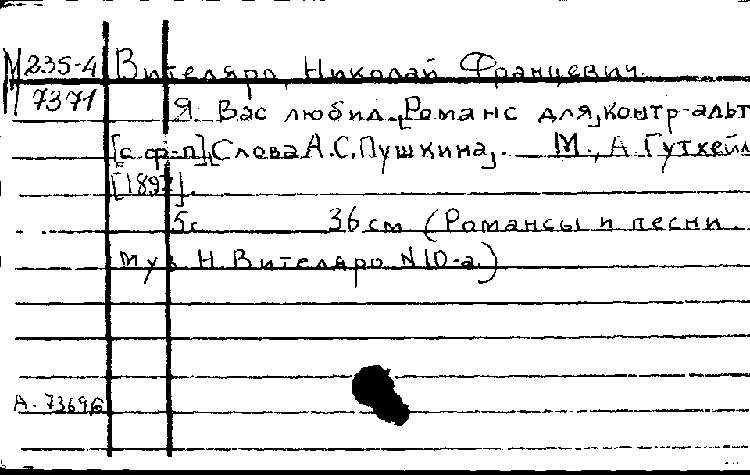 М 235-4 Вителяро, Николай Францевич.
7371 Я Вас любил. [Романс для] контр-альт
[с ф-п], [Слова А.С. Пушкина]. М., А Гутхейл
[1897].
5с 36 см (Романсы и песни
муз Н. Вителяро N 10-а.)
А. 7369